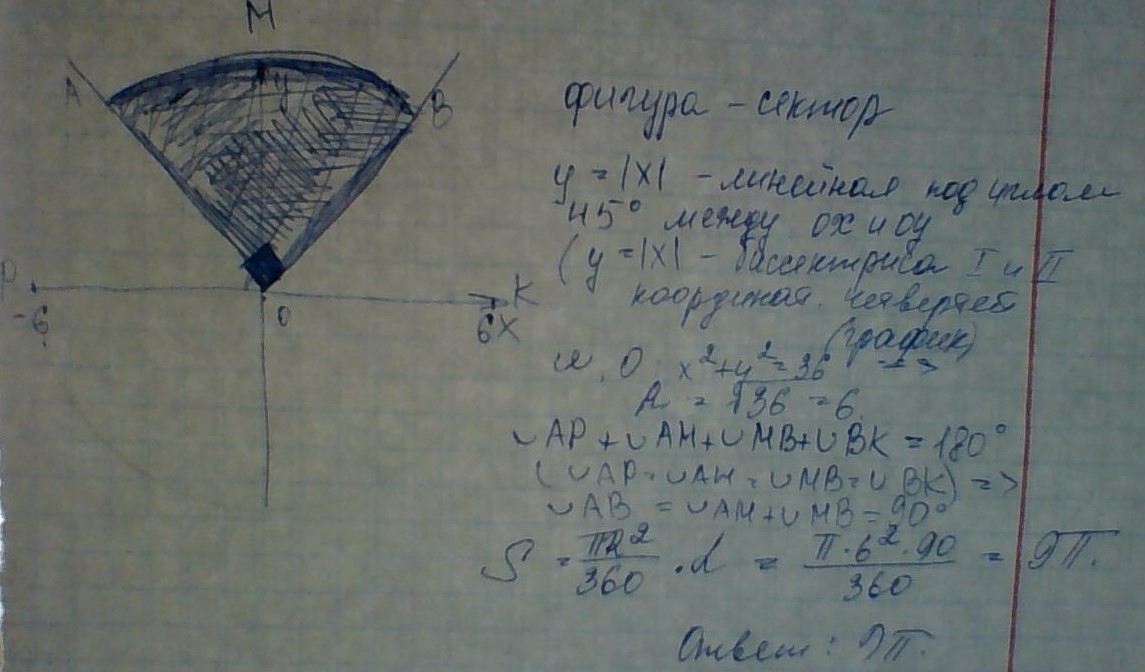 M
A
B
y
P
-6
O
K
6 X
фигура - сектор
y = |X| - линейная под углом
45° между ОХ и ОУ
(y = |X| - биссектриса I и II
координат. четвертей
(график)
x² + y² = 36 =>
R = √36 = 6.
∪AP + ∪AM + ∪MB + ∪BK = 180°
(∪AP = ∪AM = ∪MB = ∪BK) =>
∪AB = ∪AM + ∪MB = 90°
S = πR²/360 · α = π·6²·90/360 = 9π.
Ответ: 9π.